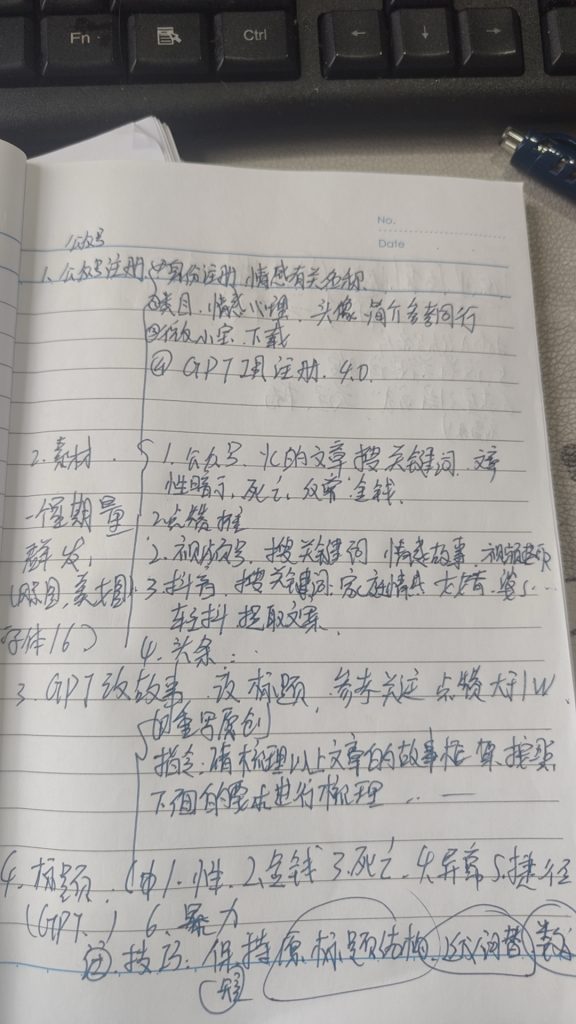 Fn
Ctrl
←
↓
→
No.
Date
公众号
1. 公众号注册 ①身份注册 情感有关名称
②类目. 情感心理. 头像 简介参考同行
下载
④ GPT 注册. 4.0.
2. 素材 1. 公众号. 的文章 搜关键词.
性暗示, 死亡, 金钱.
一个星期量 2 点赞 推
群发, 2. 视频号. 搜关键词 情感故事.
3. 抖音. 搜关键词. 家庭情感
字体16) 轻抖 提取文案.
4. 头条...
3. GPT改故事 改标题, 参考关注 点赞大于1W
的重写原创
指令: 请梳理以上文章的故事框架. 按照
下面的要求进行梳理 ... —
4. 标题. 1. 性. 2. 金钱 3. 死亡. 4. 异常 5. 捷径
(GPT.) 6. 暴力
技巧: 保持原标题结构. 词替